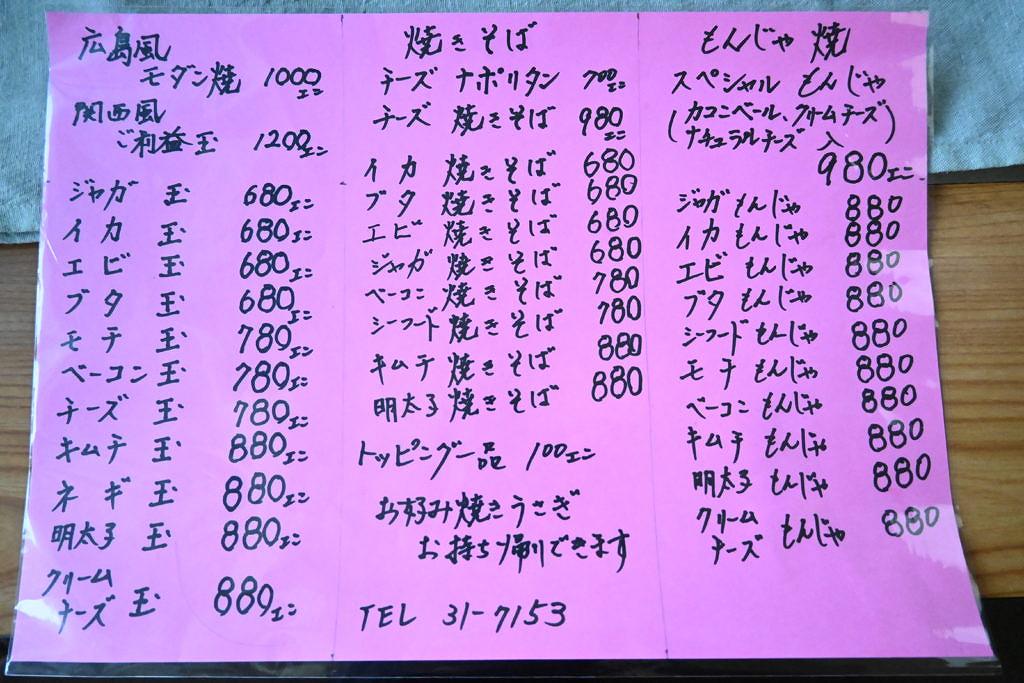 広島風
モダン焼 1000エン
関西風
ご利益玉 1200エン
ジャガ 玉 680エン
イカ 玉 680エン
エビ 玉 680エン
ブタ 玉 680エン
モチ 玉 780エン
ベーコン 玉 780エン
チーズ 玉 780エン
キムチ 玉 880エン
ネギ 玉 880エン
明太子 玉 880エン
クリーム
チーズ 玉 880エン
焼きそば
チーズ ナポリタン 700エン
チーズ 焼きそば 980エン
イカ 焼きそば 680
ブタ 焼きそば 680
エビ 焼きそば 680
ジャガ 焼きそば 680
ベーコン 焼きそば 780
シーフード 焼きそば 780
キムチ 焼きそば 880
明太子 焼きそば 880
トッピング一品 100エン
お好み焼きうさぎ
お持ち帰りできます
TEL 31-7153
もんじゃ 焼
スペシャル もんじゃ
(カコンベール、クリームチーズ
ナチュラルチーズ 入)
980エン
ジャガ もんじゃ 880
イカ もんじゃ 880
エビ もんじゃ 880
ブタ もんじゃ 880
シーフード もんじゃ 880
モチ もんじゃ 880
ベーコン もんじゃ 880
キムチ もんじゃ 880
明太子 もんじゃ 880
クリーム
チーズ もんじゃ 880